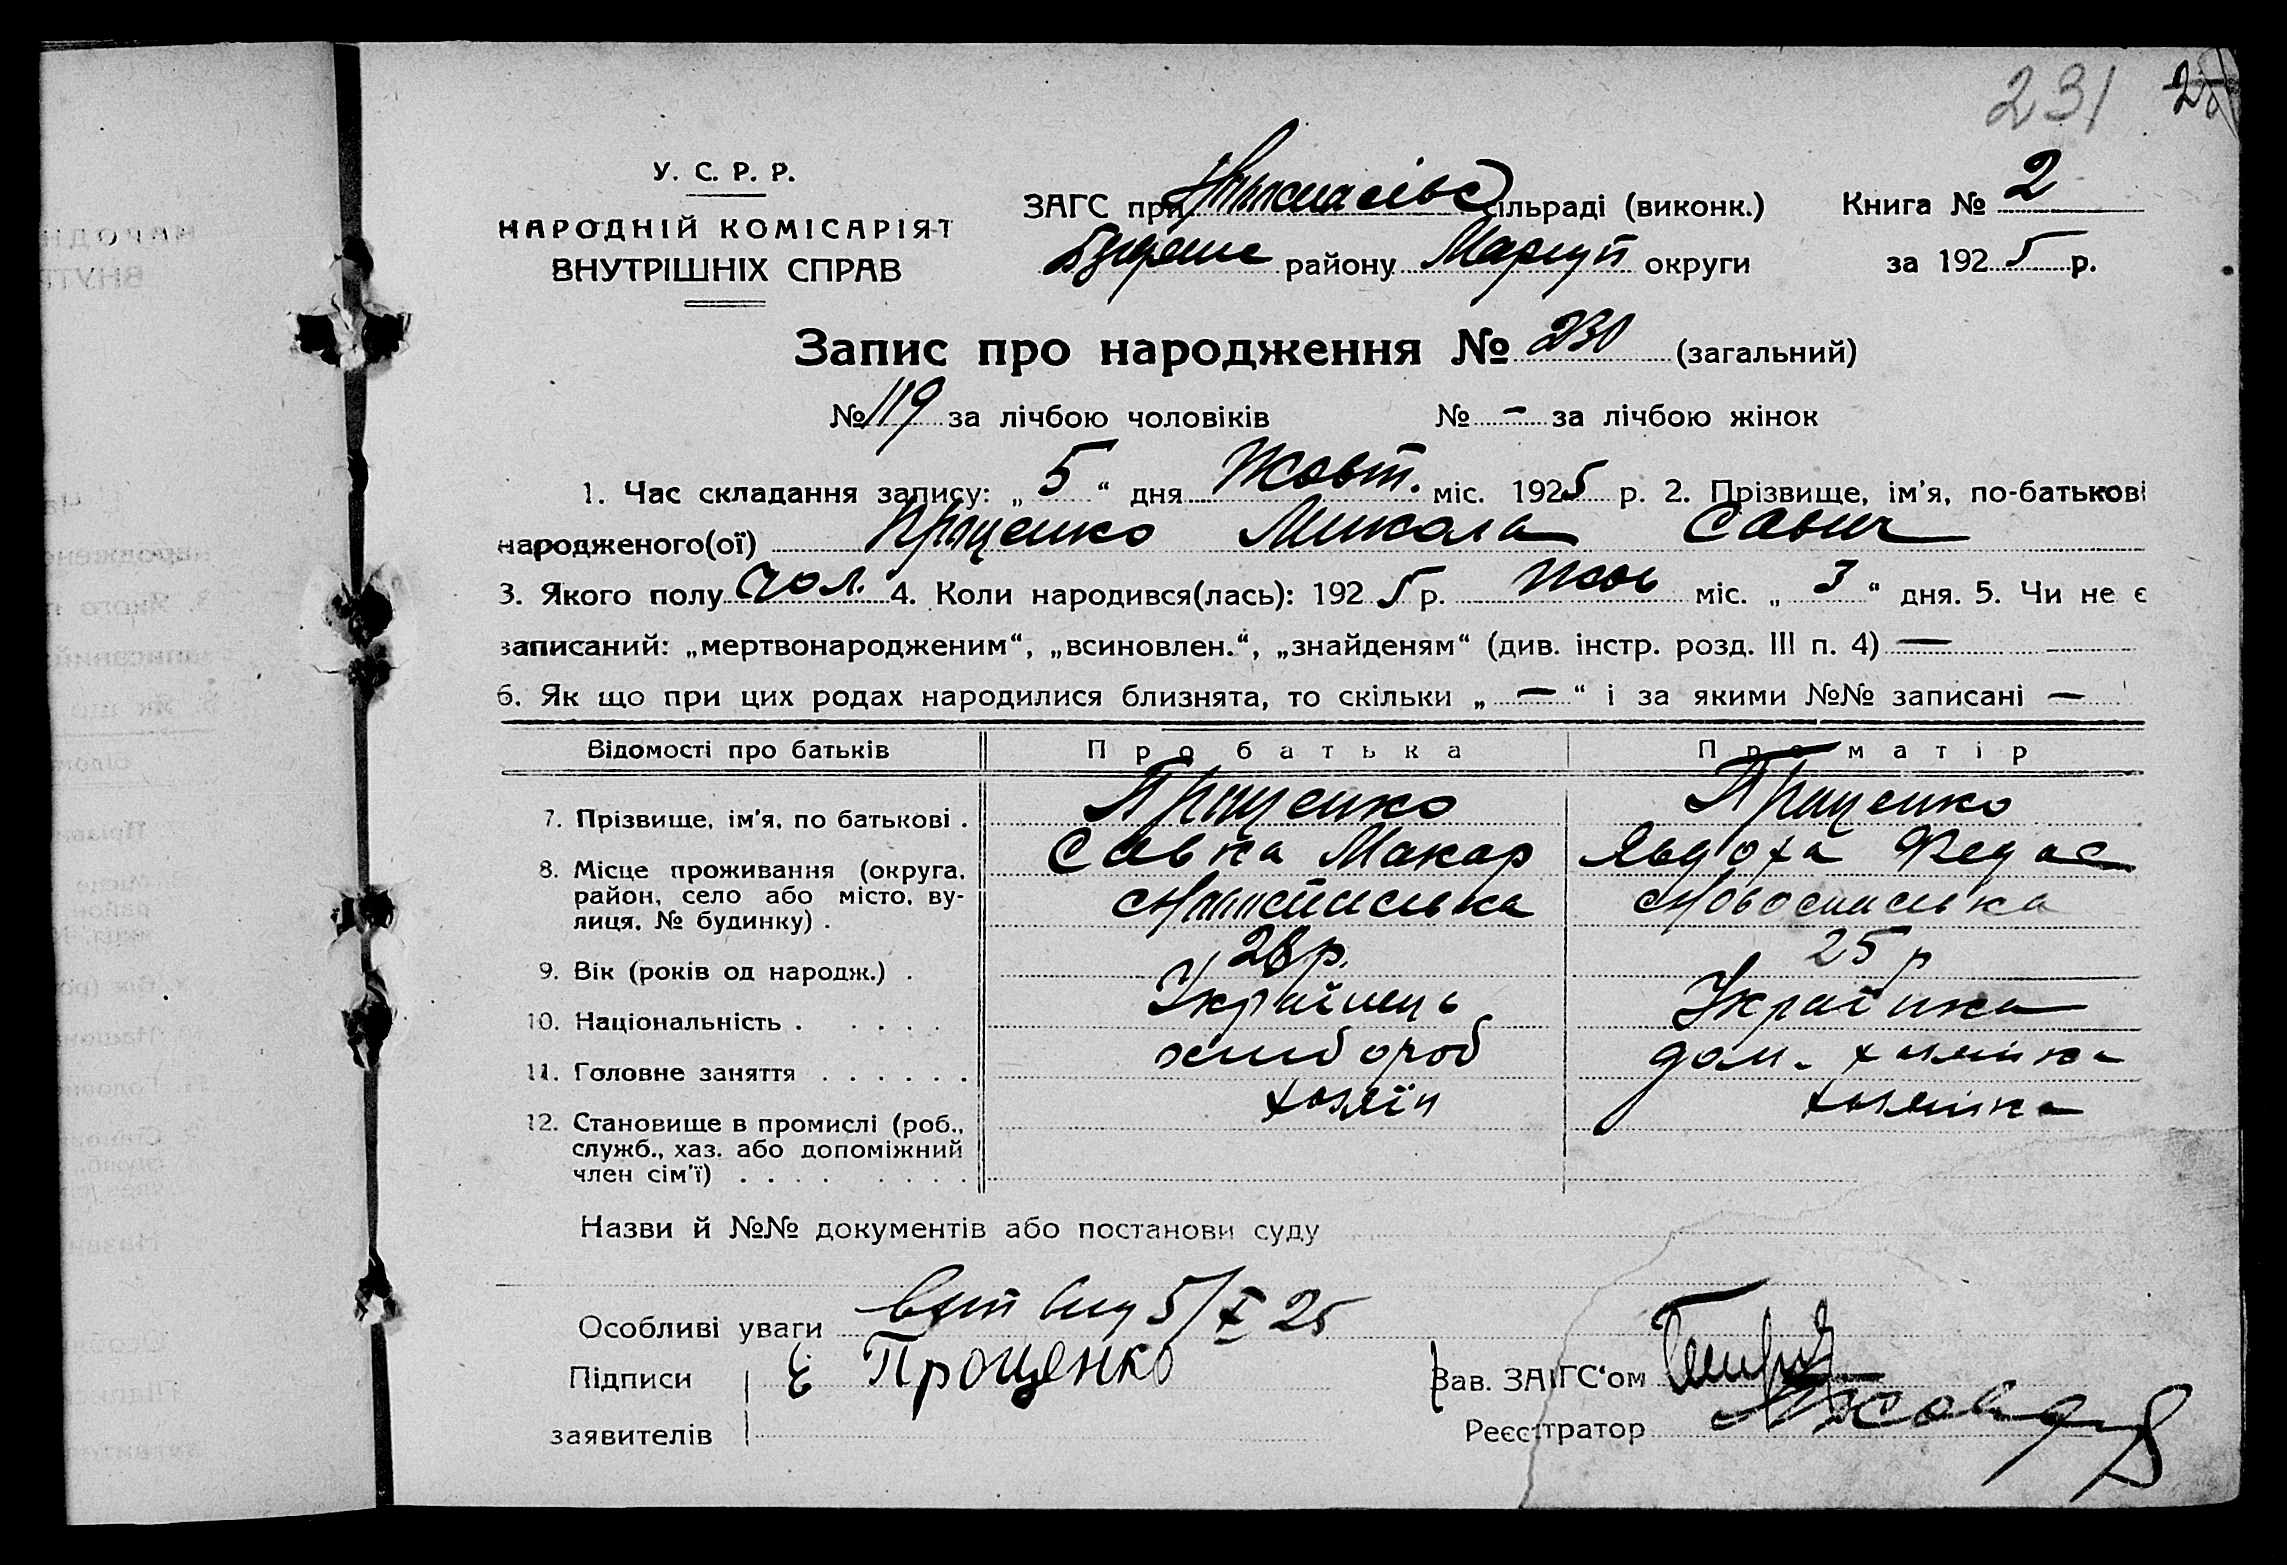 231
У. С. Р. Р.
НАРОДНІЙ КОМІСАРІЯТ
ВНУТРІШНІХ СПРАВ
ЗАГС при сільраді (виконк.) Книга № 2
району Маріуп округи за 1925 р.
Запис про народження № 230 (загальний)
№ 119 за лічбою чоловіків № — за лічбою жінок
1. Час складання запису: „ 5 “ дня Жовт. міс. 1925 р. 2. Прізвище, ім'я, по-батькові
народженого(ої) Проценко Микола Савич
3. Якого полу чол. 4. Коли народився(лась): 1925 р. Жов міс. „ 3 “ дня. 5. Чи не є
записаний: „мертвонародженим“, „всиновлен.“, „знайденям“ (див. інстр. розд. III п. 4) —
6. Як що при цих родах народилися близнята, то скільки „ — “ і за якими №№ записані —
Відомості про батьків Про батька Про матір
7. Прізвище, ім'я, по батькові . Проценко Проценко
Савка Макар Явдоха Федос
8. Місце проживання (округа,
район, село або місто, ву-
лиця, № будинку) . Новоспасівка
9. Вік (років од народж.) . 28 р. 25 р
10. Національність . . . . . Українець Українка
11. Головне заняття . . . . . . хлибороб дом. хозяйка
12. Становище в промислі (роб., хозяїн хозяйка
служб., хаз. або допоміжний
член сім'ї) . . . . . . . .
Назви й №№ документів або постанови суду
Особливі уваги 5/X 25
Підписи Проценко Зав. ЗАГС'ом
заявителів Реєстратор